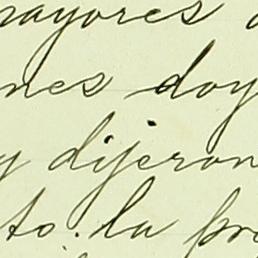 mayores
nes doy
y dijeron
to. la pro